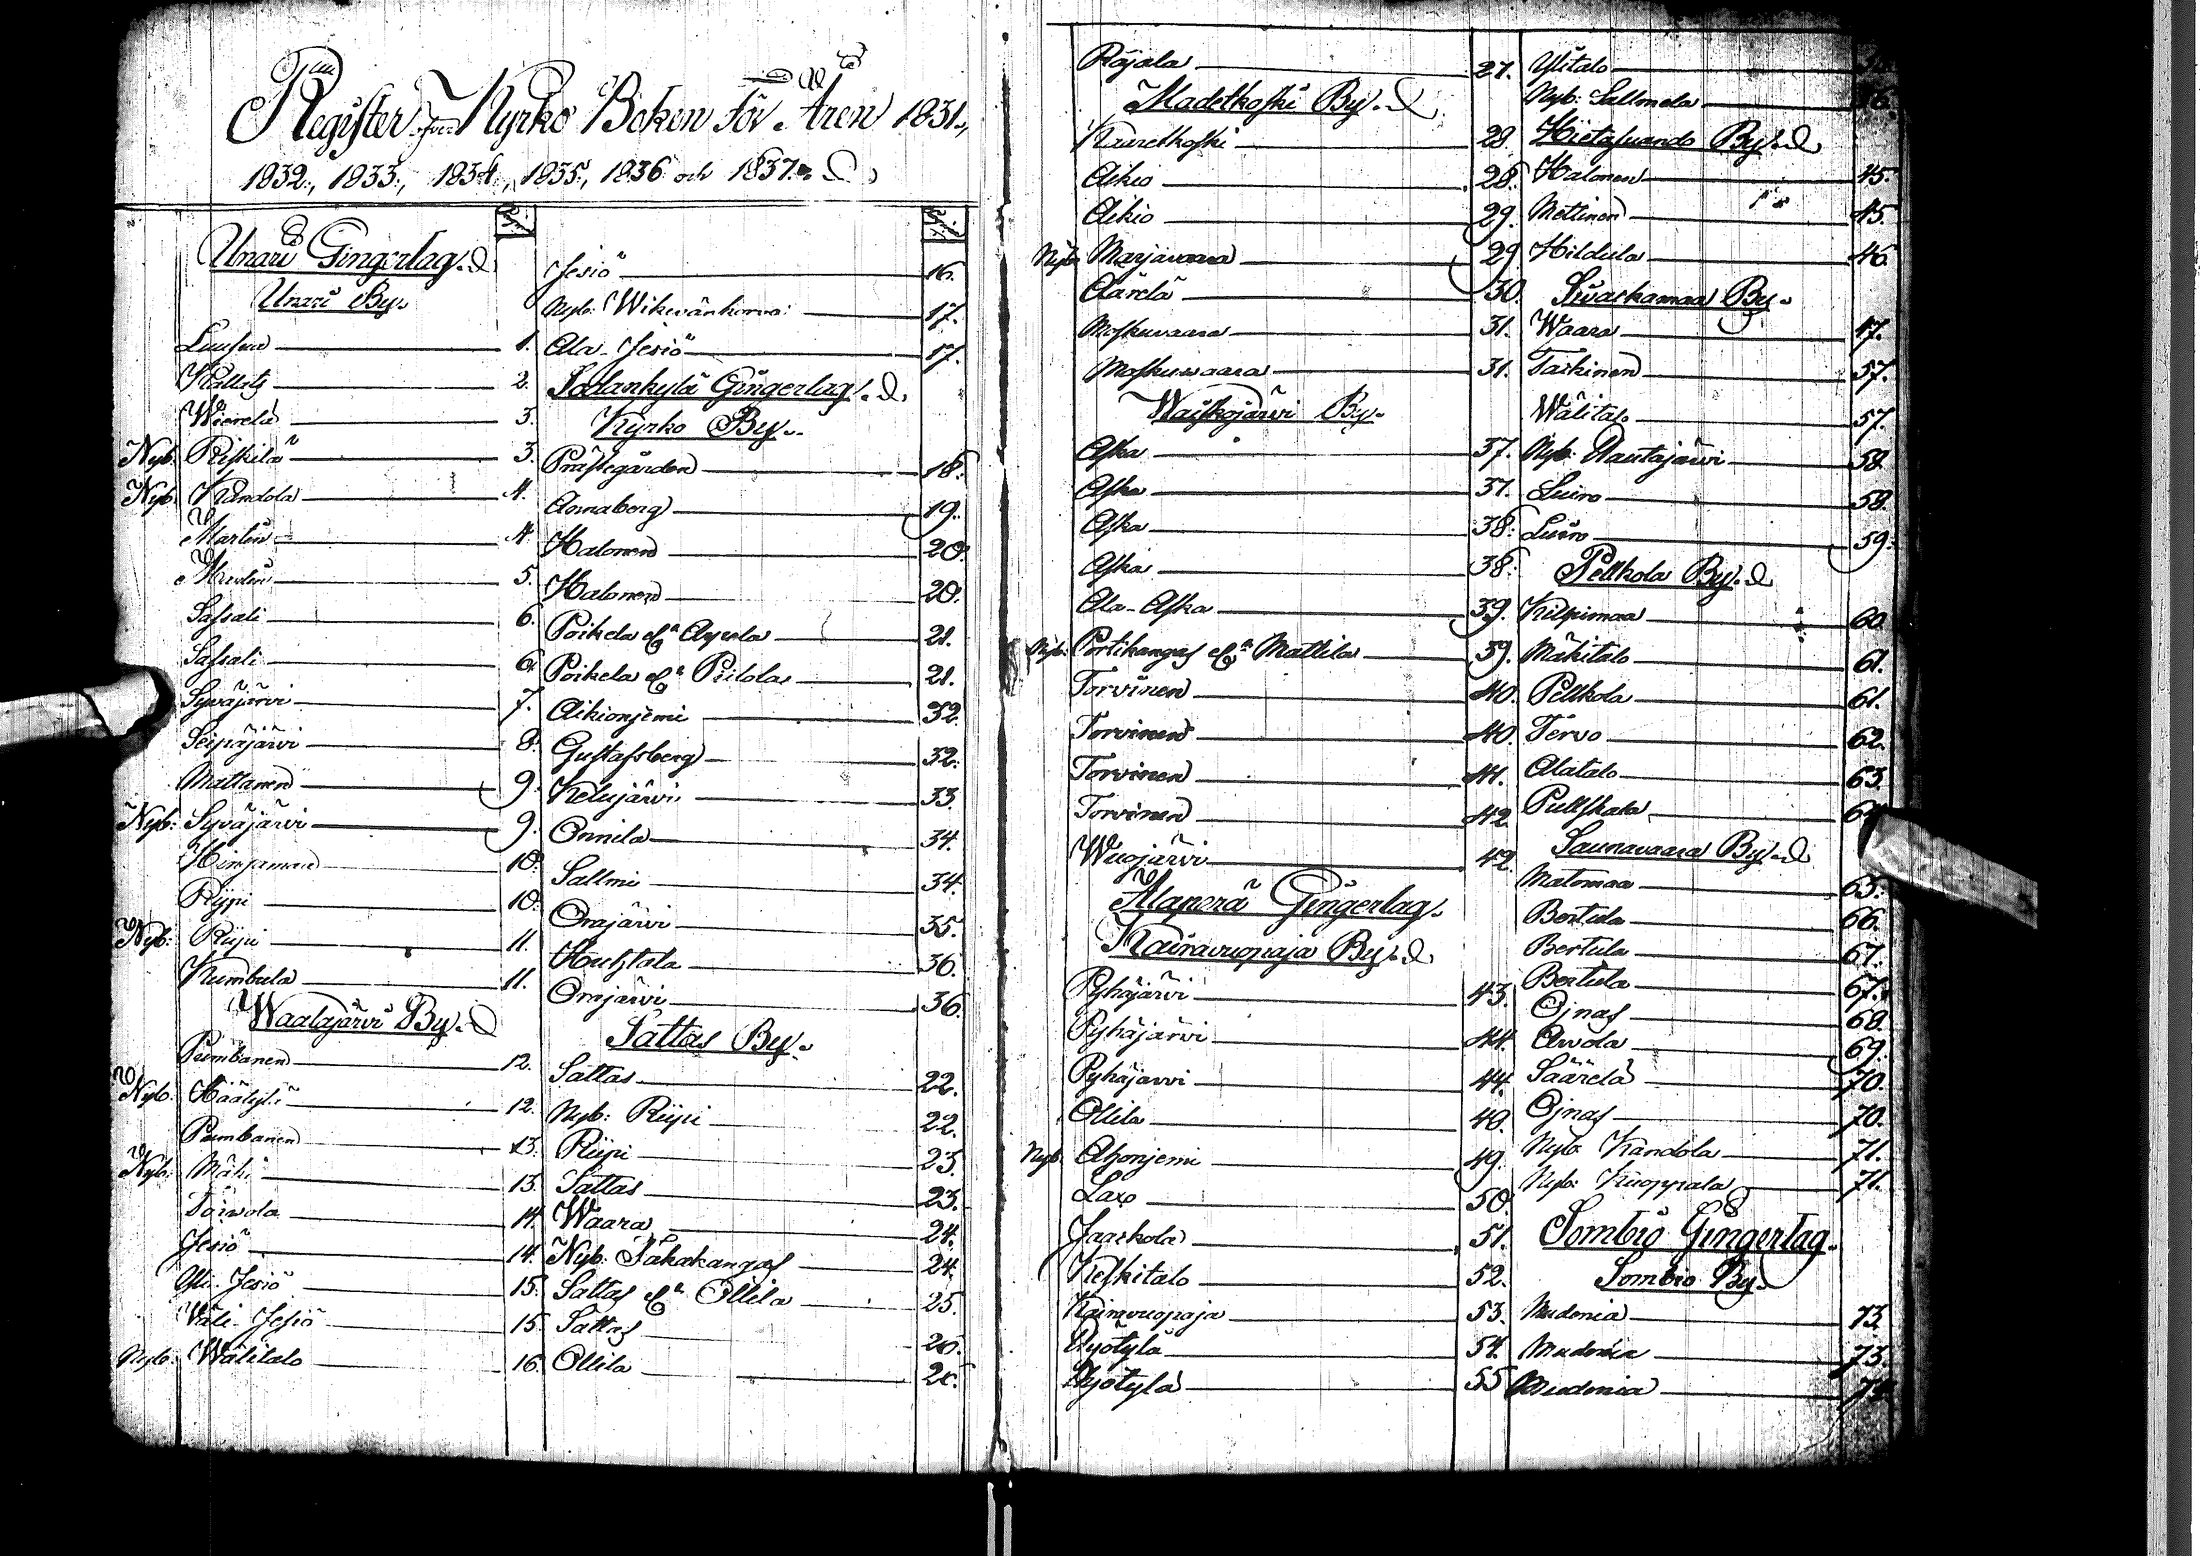 Register för Kyrko Boken för Åren 1831.,
1832., 1833., 1834., 1835., 1836 och 1837.
Unari Gingerlag.
Unari By.
Luusua 1.
Kallatj 2.
Wierela 3.
Nyb: Riskilä 3.
Nyb. Kandola 4.
Martin 4.
5.
Sassali 6.
Sassali 6.
Syväjärvi 7.
Seipäjärvi 8.
Mattanen 9.
Nyb: Syväjärvi 9.
Hinjaman 10.
Riipi 10.
Nyb: Riipi 11.
Kumbula 11.
Waalajärvi By.
Pumbanen 12.
Nyb. Häätylä 12.
Pumbanen 13.
Nyb. Mäki 13.
Toivola 14.
Jesiö 14.
Yli-Jesiö 15.
Väli-Jesiö 15.
Nyb. Wälitalo 16.
Jesiö 16.
Nyb: Wikevänkorva 17.
Ala-Jesiö 17.
Sodankylä Gingerlag.
Kyrko By.
Prästegården 18.
Annaberg 19.
Halonen 20.
Halonen 20.
Poikela el:r Ayrola 21.
Poikela el:r Piilola 21.
Aikionjemi 32.
Gustafsberg 32.
Kelujärvi 33.
Onnela 34.
Sallmi 34.
Orajärvi 35.
Huhtala 36.
Orajärvi 36.
Sattas By.
Sattas 22.
Nyb: Riipi 22.
Riipi 23.
Sattas 23.
Waara 24.
Nyb: Sahakangas 24.
Sattas el:r Ollila 25.
Sattas 26.
Ollila 26.
Rajala 27.
Madetkoski By.
Kaaretkoski 28.
Aikio 28.
Aikio 29.
Nyb. Marjavaara 29.
Aärelä 30.
Moskuvaara 31.
Moskuvaara 31.
Waiskojärvi By.
Aska 37.
Aska 37.
Aska 38.
Aska 38.
Ala-Aska 39.
Nyb: Portikangas el:r Mattila 39.
Torvinen 40.
Torvinen 40.
Torvinen 41.
Torvinen 42.
Wuojärvi 42.
Alaperä Gingerlag.
Kairavuopaja By.
Pyhäjärvi 43.
Pyhäjärvi 44.
Pyhäjärvi 44.
Ollila 49.
Nyb. Ahonjemi 49.
Laxo 50.
Jaaskola 51.
Keskitalo 52.
Kairavuopaja 53.
Hyötylä 54.
Hyötylä 55
Ylitalo
Nyb: Sallmela 56.
Hietasuando By.
Halonen 45.
Mettinen 45.
Hildula 46.
Siuaskamaa By.
Waara 47.
Tarkinen 57.
Wälitalo 57.
Nyb: Rautajärvi 58.
Luiro 58.
Luiro 59.
Pellkola By.
Kilpimaa 60.
Mäkitalo 61.
Pellkola 61.
Tervo 62.
Alatalo 63.
Pullskala 64.
Saunavaara By.
Matomaa 65.
Bertula 66.
Bertula 67.
Bertula 67.
Ojnas 68.
Arvola 69.
Säärelä 70.
Ojnas 70.
Nyb. Kandola 71.
Nyb: Kuoppala 71.
Sombio Gingerlag.
Sombio By.
Mudenia 73.
Mudenia 73.
Mudenia 74.